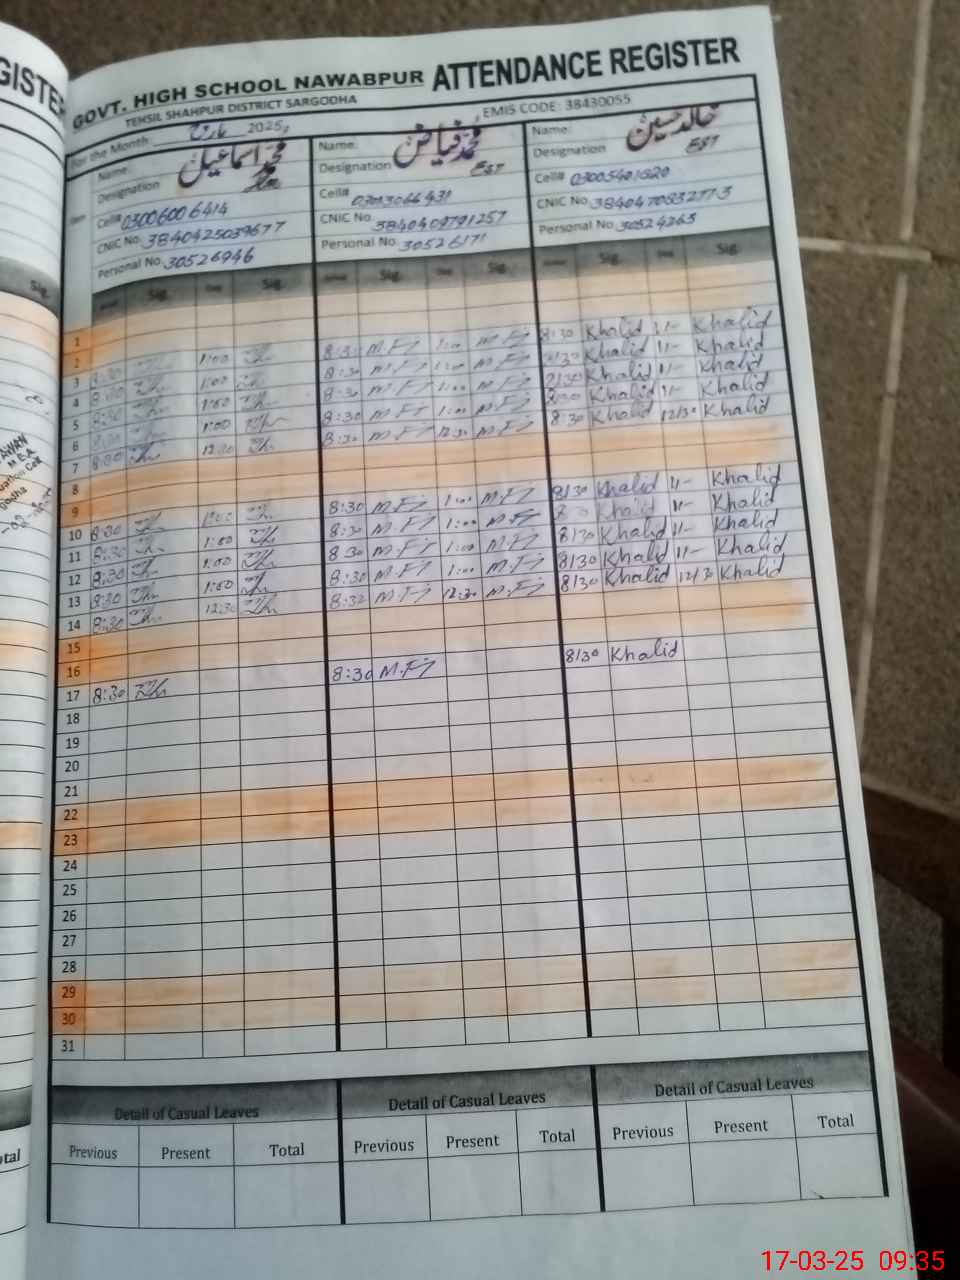 GISTER
GOVT. HIGH SCHOOL NAWABPUR ATTENDANCE REGISTER
TEHSIL SHAHPUR DISTRICT SARGODHA , EMIS CODE: 38430055
For the Month مارچ 2025,
Name: محمد اسماعیل
Designation
Cell# 03006006414
CNIC No. 3840425039677
Personal No. 30526946
Name: محمد فیاض
Designation EST
Cell# 03013066431
CNIC No. 3840409791257
Personal No. 30526171
Name: خالد حسین
Designation EST
Cell# 03005401520
CNIC No. 3840470532773
Personal No. 30524265
Sig. Sig. Sig. Sig. Sig. Sig. Sig.
1
2
3 8:30 1:00 8:30 M.Fj 1:00 M.Fj 8:30 Khalid 1/- Khalid
4 8:30 1:00 8:30 M.Fj 1:00 M.Fj 8:30 Khalid 1/- Khalid
5 8:30 1:00 8:30 M.Fj 1:00 M.Fj 8:30 Khalid 1/- Khalid
6 8:30 1:00 8:30 M.Fj 1:00 M.Fj 8:30 Khalid 1/- Khalid
7 8:30 12:30 8:30 M.Fj 12:30 M.Fj 8:30 Khalid 12/30 Khalid
8
9
10 8:30 1:00 8:30 M.Fj 1:00 M.Fj 8/30 Khalid 1/- Khalid
11 8:30 1:00 8:30 M.Fj 1:00 M.Fj 8/30 Khalid 1/- Khalid
12 8:30 1:00 8:30 M.Fj 1:00 M.Fj 8/30 Khalid 1/- Khalid
13 8:30 1:00 8:30 M.Fj 1:00 M.Fj 8/30 Khalid 1/- Khalid
14 8:30 12:30 8:30 M.Fj 12:30 M.Fj 8/30 Khalid 12/30 Khalid
15
16
17 8:30 8:30 M.Fj 8/30 Khalid
18
19
20
21
22
23
24
25
26
27
28
29
30
31
Detail of Casual Leaves Detail of Casual Leaves Detail of Casual Leaves
Previous Present Total Previous Present Total Previous Present Total
17-03-25 09:35